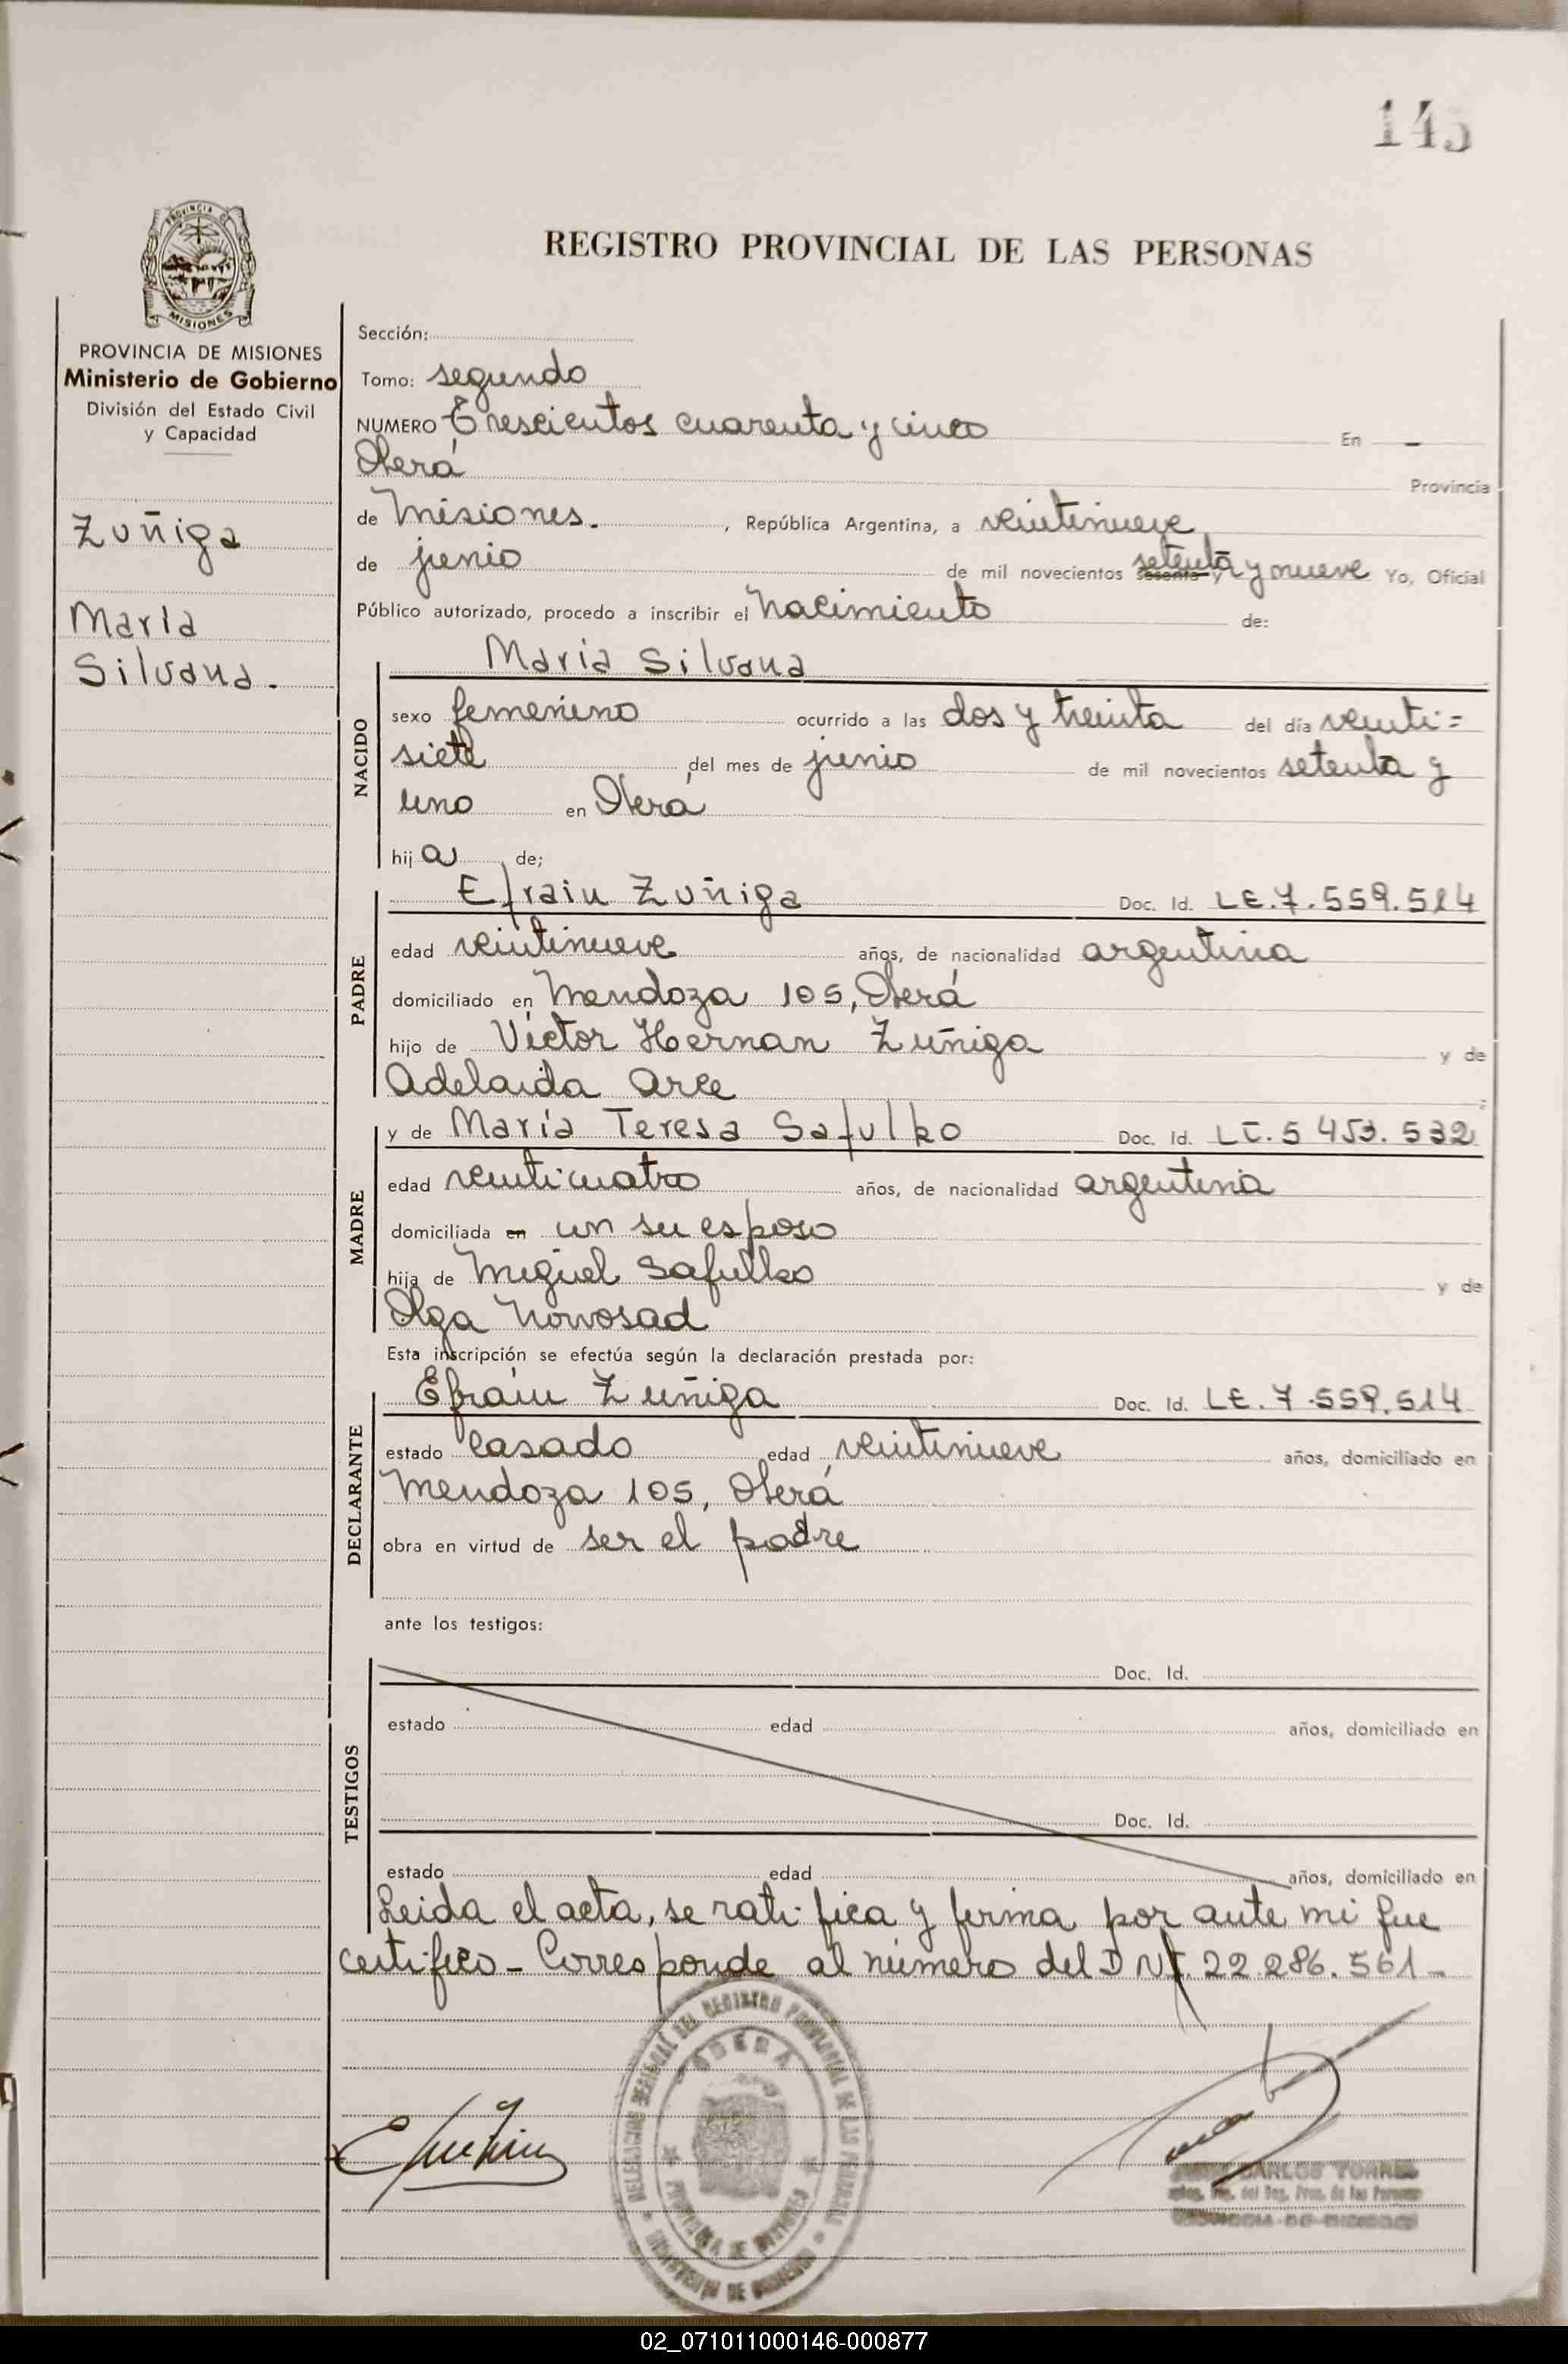 145
REGISTRO PROVINCIAL DE LAS PERSONAS
PROVINCIA DE
MISIONES
PROVINCIA DE MISIONES
Ministerio de Gobierno
División del Estado Civil
y Capacidad
Zuñiga
María
Silvana.
Sección:
Tomo: segundo
NUMERO Trescientos cuarenta y cinco En -
Oberá Provincia
de Misiones. , República Argentina, a veintinueve
de junio de mil novecientos sesenta y setenta y nueve Yo, Oficial
Público autorizado, procedo a inscribir el nacimiento de:
María Silvana
NACIDO
sexo femenino ocurrido a las dos y treinta del día veinti=
siete del mes de junio de mil novecientos setenta y
uno en Oberá
hija de;
PADRE
Efrain Zuñiga Doc. Id. LE.7.559.514
edad veintinueve años, de nacionalidad argentina
domiciliado en Mendoza 105, Oberá
hijo de Victor Hernan Zuñiga y de
Adelaida Arce ;
MADRE
y de María Teresa Safulko Doc. Id. LC.5 453.532
edad veinticuatro años, de nacionalidad argentina
domiciliada en con su esposo
hija de Miguel Safulko y de
Olga Nowosad
Esta inscripción se efectúa según la declaración prestada por:
DECLARANTE
Efraín Zuñiga Doc. Id. LE.7.559.514
estado casado edad veintinueve años, domiciliado en
Mendoza 105, Oberá
obra en virtud de ser el padre
ante los testigos:
TESTIGOS
Doc. Id.
estado edad años, domiciliado en
Doc. Id.
estado edad años, domiciliado en
Leida el acta, se ratifica y firma por ante mi que
certifico - Corresponde al número del DNI. 22.286.561-
DELEGACION REGIONAL DEL REGISTRO PROVINCIAL DE LAS PERSONAS
OBERA
PROVINCIA DE MISIONES
MINISTERIO DE GOBIERNO
CARLOS TORRES
del Reg. Prov. de las Personas
PROVINCIA DE MISIONES
02_071011000146-000877